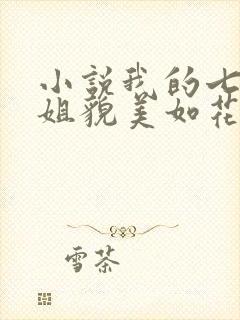 小说我的七
姐貌美如花
雪茶